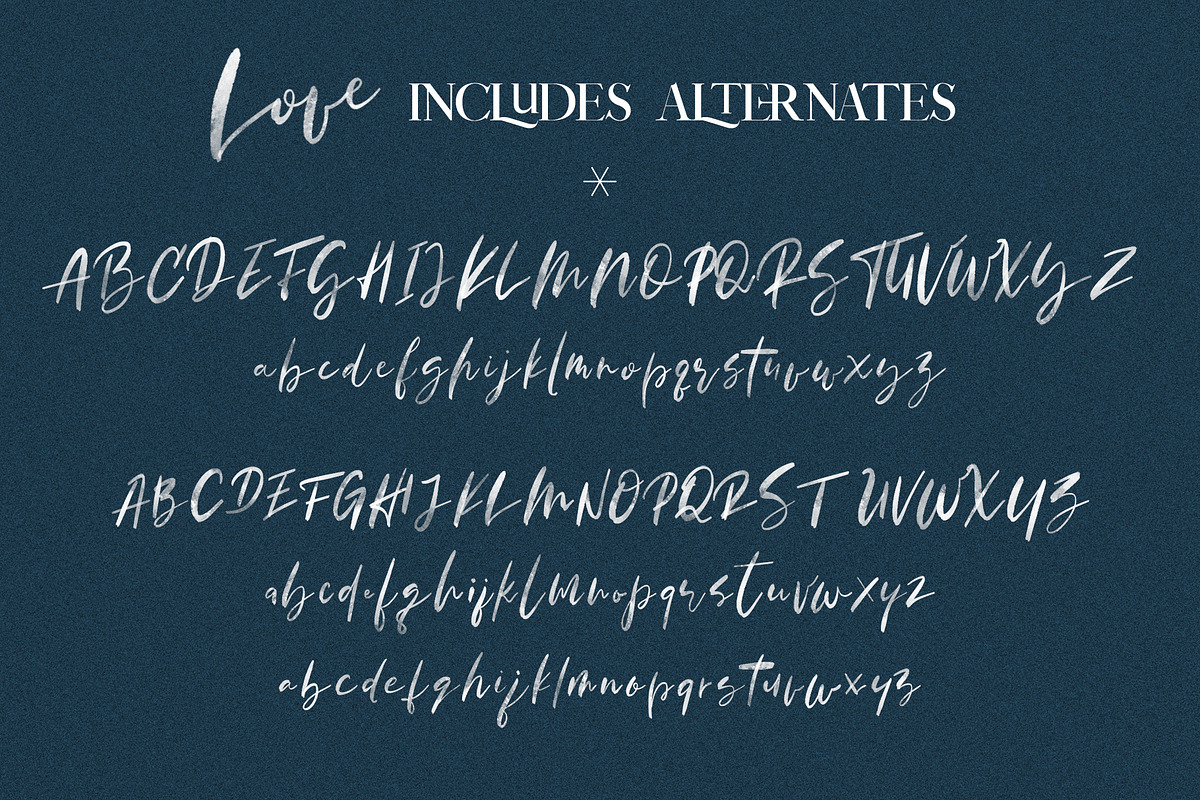 Love INCLUDES ALTERNATES
ABCDEFGHIJKLMNOPQRSTUVWXYZ
abcdefghijklmnopqrstuvwxyz
ABCDEFGHIJKLMNOPQRSTUVWXYZ
abcdefghijklmnopqrstuvwxyz
abcdefghijklmnopqrstuvwxyz